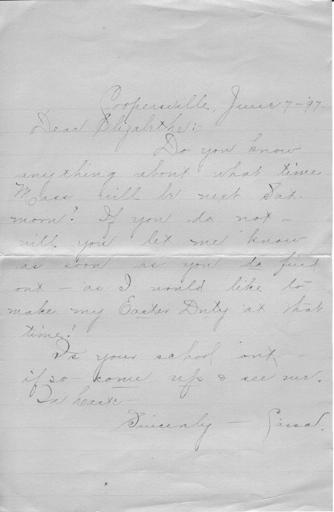 Coopersville, June 7-'97
Dear Elizabethe:
Do you know
anything about what time
Mass will be next Sat.
morn? If you do not -
will you let me know
as soon as you do find
out - as I would like to
make my Easter Duty at that
time!
Is your school out -
if so - come up & see me.
In haste -
Sincerely -